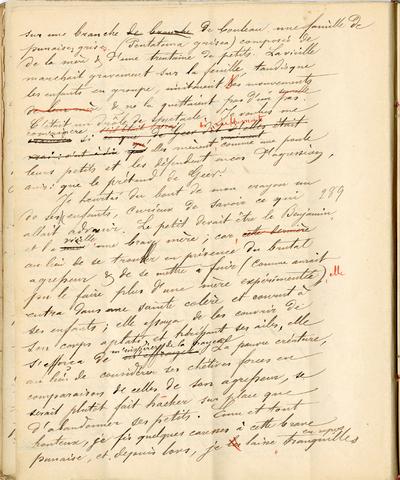 sur une branche de bouleau, une famille de
punaises grises (Pentatoma grisea) composée de
de la mère & d'une trentaine de petits. La vieille
marchait gravement sur la feuille, tandisque
les enfants en groupe, imitaient les mouvements
& ne la quittaient pas d'un pas.
C'était un drôle de spectacle
les menait comme une poule
leurs petits et les défendant envers l'agresseur,
ainsi que le prétend de Geer.
Je heurtai du bout de mon crayon un
de ses enfants, curieux de savoir ce qui 189
allait advenir. Le petit devait être le Benjamin
et la vieille une brave mère; car cette dernière
au lieu de se troubler en présence du brutal
agresseur & de se mettre à fuir (comme aurait
pu le faire plus d'une mère expérimentée) elle
entra dans une sainte colère et courut à
ses enfants; elle essaya de les couvrir de
son corps aplati et hérissant ses ailes, elle
s'efforça de La pauvre créature,
au lieu de considérer ses chétives forces en
comparaison de celles de son agresseur, se
serait plutôt fait hacher sur place que
d'abandonner ses petits. Emu et tout
honteux, je fis quelques caresses à cette brave
punaise, et depuis lors, je laisse tranquilles